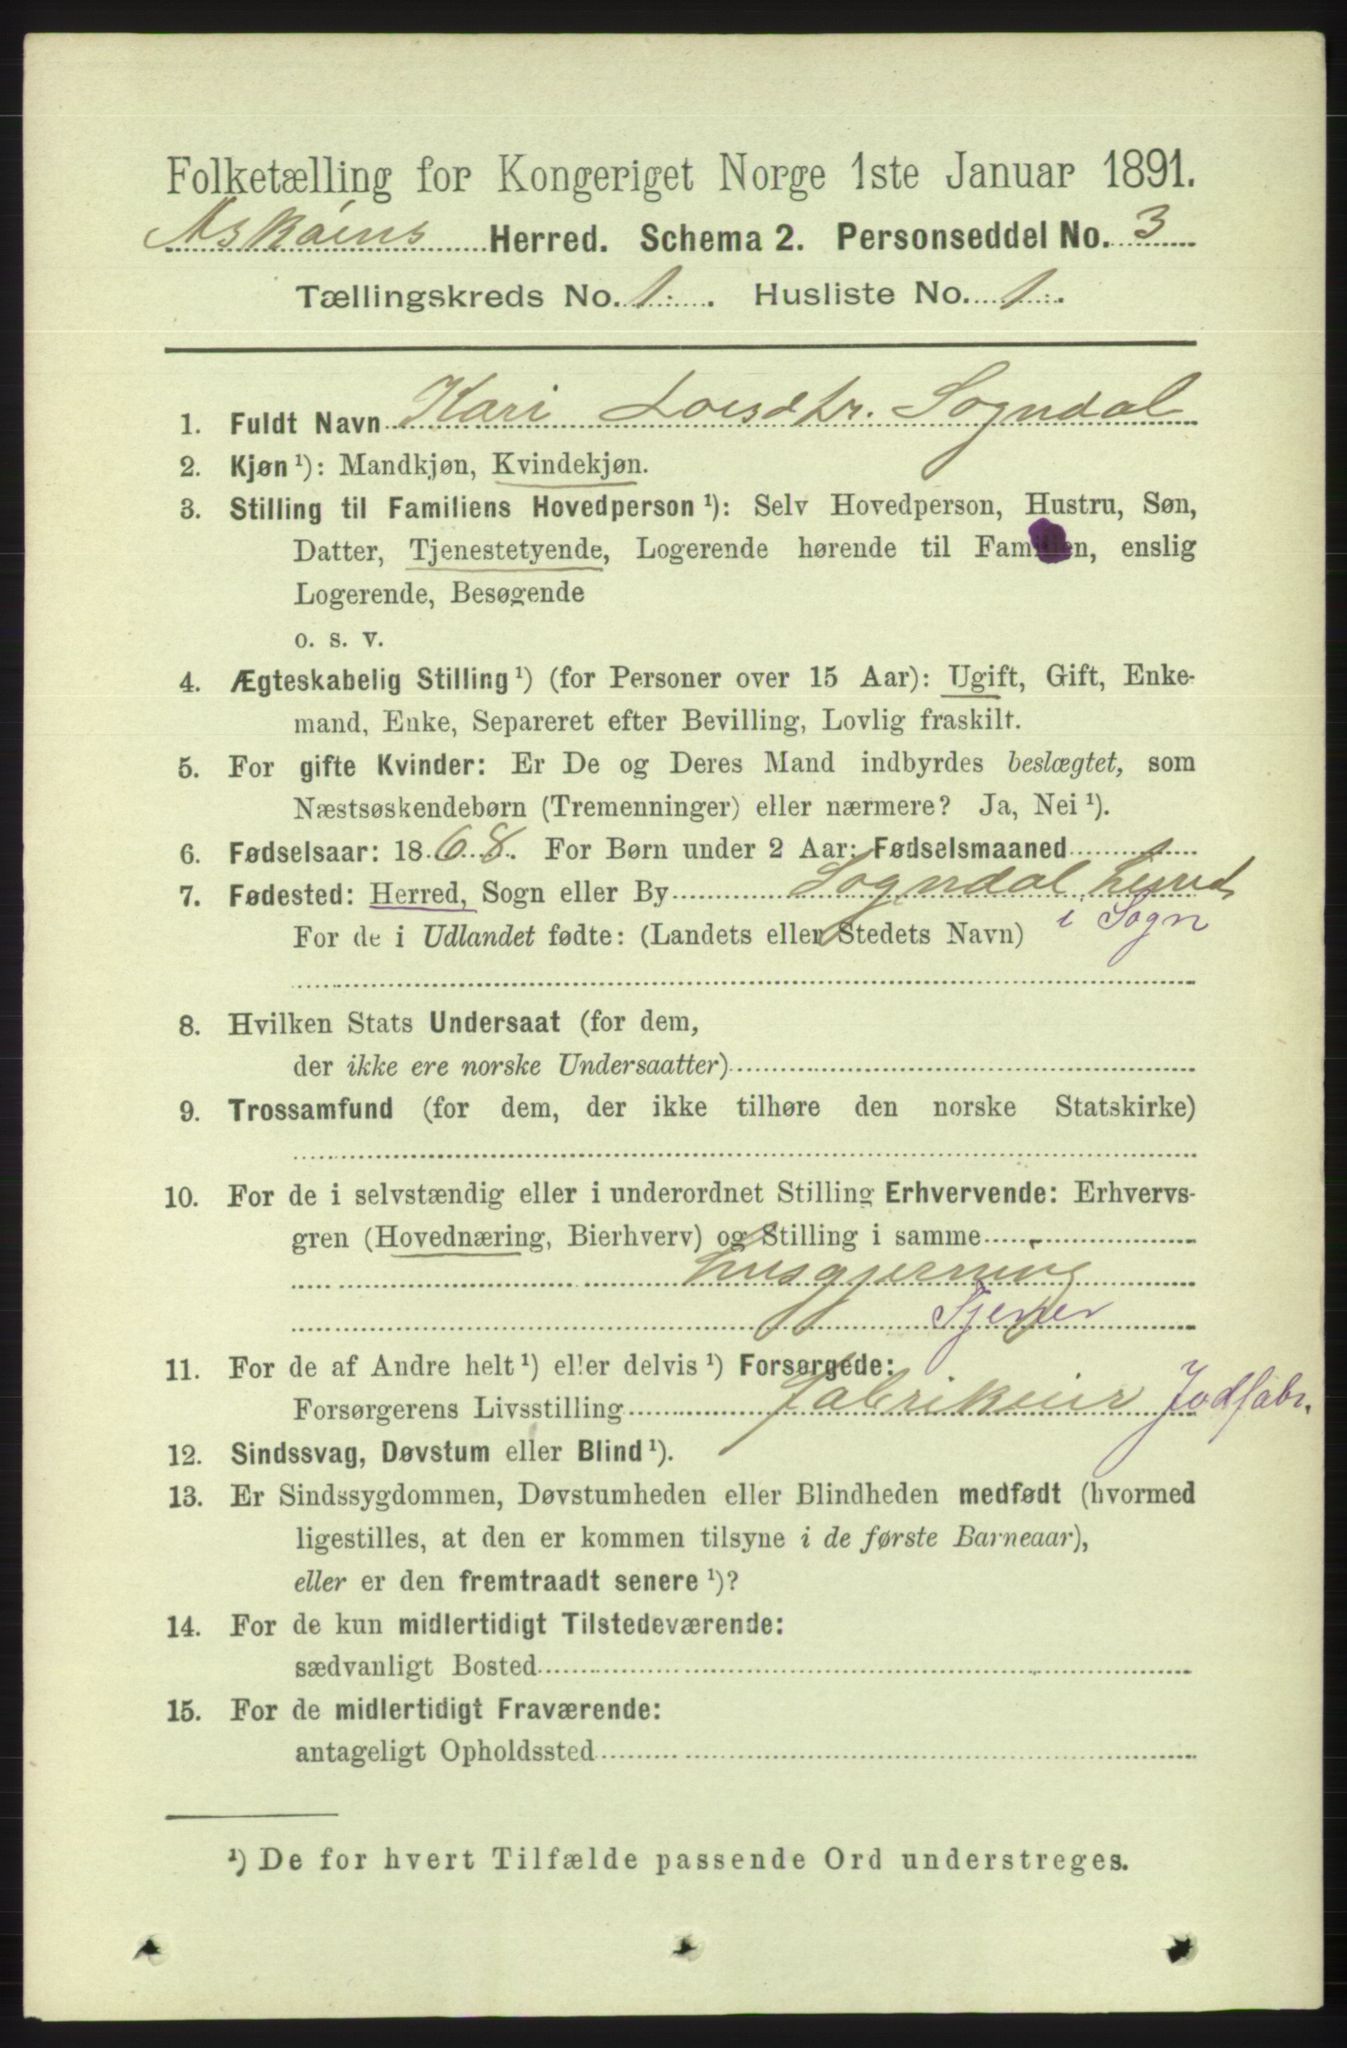 Folketælling for Kongeriget Norge 1ste Januar 1891.
Askøens Herred. Schema 2. Personseddel No. 3
Tællingskreds No. 1. Husliste No. 1.
1. Fuldt Navn Kari Larsdtr. Sogndal
2. Kjøn ¹): Mandkjøn, Kvindekjøn.
3. Stilling til Familiens Hovedperson ¹): Selv Hovedperson, Hustru, Søn,
Datter, Tjenestetyende, Logerende hørende til Familien, enslig
Logerende, Besøgende
o. s. v.
4. Ægteskabelig Stilling ¹) (for Personer over 15 Aar): Ugift, Gift, Enke-
mand, Enke, Separeret efter Bevilling, Lovlig fraskilt.
5. For gifte Kvinder: Er De og Deres Mand indbyrdes beslægtet, som
Næstsøskendebørn (Tremenninger) eller nærmere? Ja, Nei ¹).
6. Fødselsaar: 1868. For Børn under 2 Aar: Fødselsmaaned
7. Fødested: Herred, Sogn eller By Sogndal
i Sogn
For de i Udlandet fødte: (Landets eller Stedets Navn)
8. Hvilken Stats Undersaat (for dem,
der ikke ere norske Undersaatter)
9. Trossamfund (for dem, der ikke tilhøre den norske Statskirke)
10. For de i selvstændig eller i underordnet Stilling Erhvervende: Erhvervs-
gren (Hovednæring, Bierhverv) og Stilling i samme
Husgjerning
Tjener
11. For de af Andre helt ¹) eller delvis ¹) Forsørgede:
Forsørgerens Livsstilling Fabrikeier Jodfabr.
12. Sindssvag, Døvstum eller Blind ¹).
13. Er Sindssygdommen, Døvstumheden eller Blindheden medfødt (hvormed
ligestilles, at den er kommen tilsyne i de første Barneaar),
eller er den fremtraadt senere ¹)?
14. For de kun midlertidigt Tilstedeværende:
sædvanligt Bosted
15. For de midlertidigt Fraværende:
antageligt Opholdssted
¹) De for hvert Tilfælde passende Ord understreges.